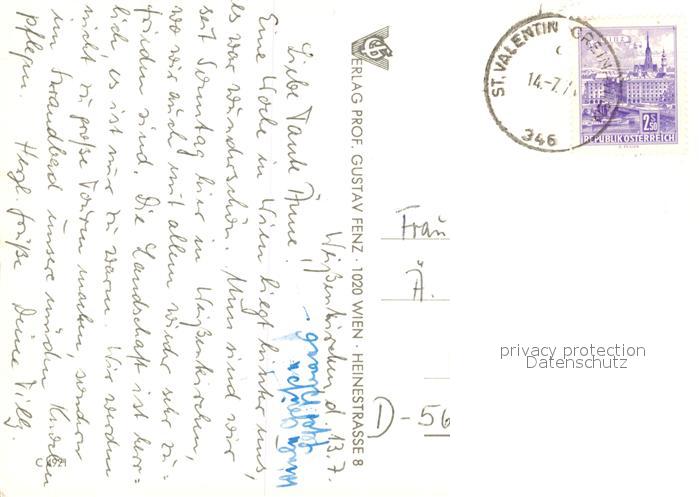 Weißenkirchen, d. 13.7.
Liebe Tante Änne!
Eine Woche in Wien liegt hinter uns,
es war wunderschön. Nun sind wir
seit Sonntag hier in Weißenkirchen,
wo wir auch mit allem wieder sehr zu=
frieden sind. Die Landschaft ist herr=
lich, es ist nur zu warm. Wir werden
nicht zu große Touren machen, sondern
im Strandbad unsere müden Knochen
pflegen. Herzl. Grüße Deine Tilly.
VERLAG PROF. GUSTAV FENZ · 1020 WIEN · HEINESTRASSE 8
ST. VALENTIN GREIN
14.-7.
346
LINZ
2S50
REPUBLIK ÖSTERREICH
Frau
Ä.
D-56
privacy protection
Datenschutz